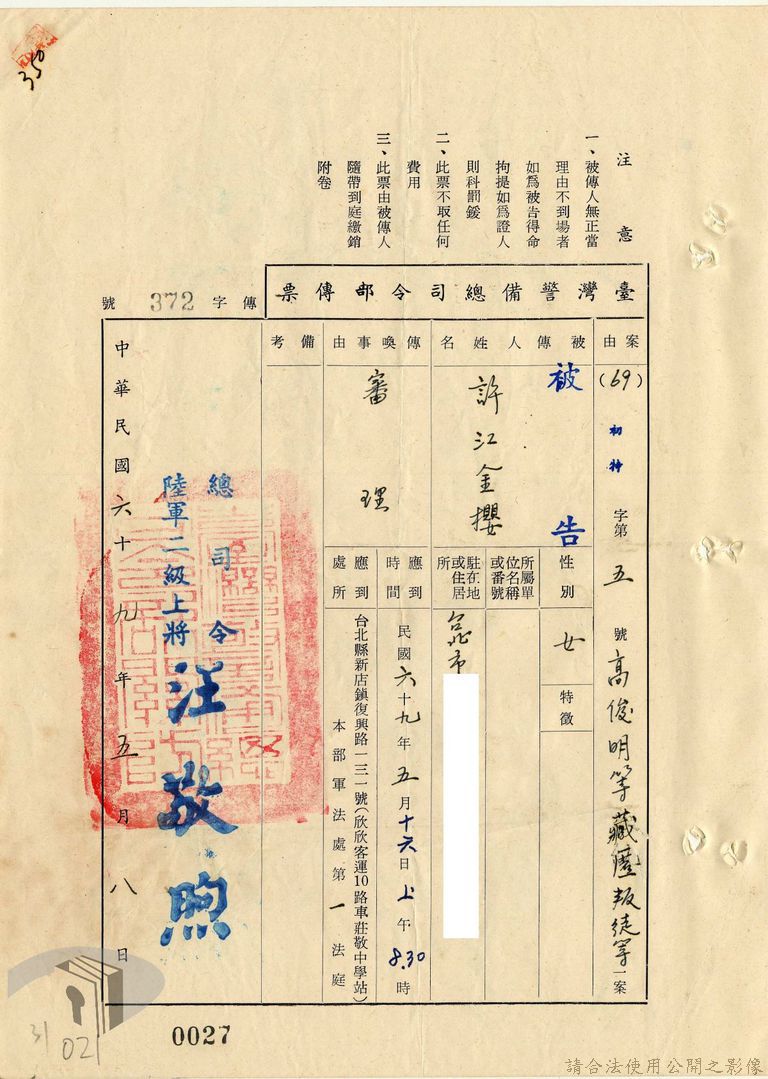 350
注意
一、被傳人無正當
理由不到場者
如為被告得命
拘提如為證人
則科罰鍰
二、此票不取任何
費用
三、此票由被傳人
隨帶到庭繳銷
附卷
臺灣警備總司令部傳票
傳字 372 號
案由
(69)初特字第五號高俊明等藏匿叛徒等一案
被傳人姓名
被告
許江金櫻
性別
女
特徵
所屬單
位名稱
或番號
駐在地
或住居
所
台北市
傳喚事由
審理
應到
時間
民國六十九年五月十六日上午8.30時
應到
處所
台北縣新店鎮復興路一三一號(欣欣客運10路車莊敬中學站)
本部軍法處第一法庭
備考
總司令
陸軍二級上將汪敬煦
中華民國六十九年五月八日
0027
31
021
請合法使用公開之影像